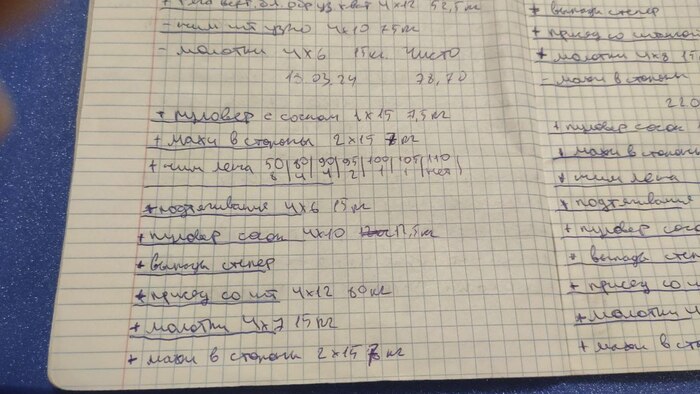 + тяга верт. бл. 4х12 52,5 кг
- жим шт узко 4х10 75кг
- молотки 4х6 15кг. чисто
13.03.24 78,70
+ пуловер с соском 1х15 7,5 кг
+ махи в стороны 2х15 кг
+ жим лежа 50/8 80/4 90/4 95/2 100/1 105/1 110/нет
+ подтягивания 4х6 15кг
+ пуловер сосок 4х10 17,5кг
+ выпады степер
+ присед со шт 4х12 80кг
+ молотки 4х7 15кг
+ махи в стороны 2х15 кг
+ выпады степер
+ присед со штангой
+ молотки 4х8 15
- махи в стороны
220
+ пуловер сосок
+ махи в сторон
+ жим лежа
+ подтягивания
+ пуловер сос
+ выпады степ
+ присед со ш
+ молотки 4
+ махи в сто